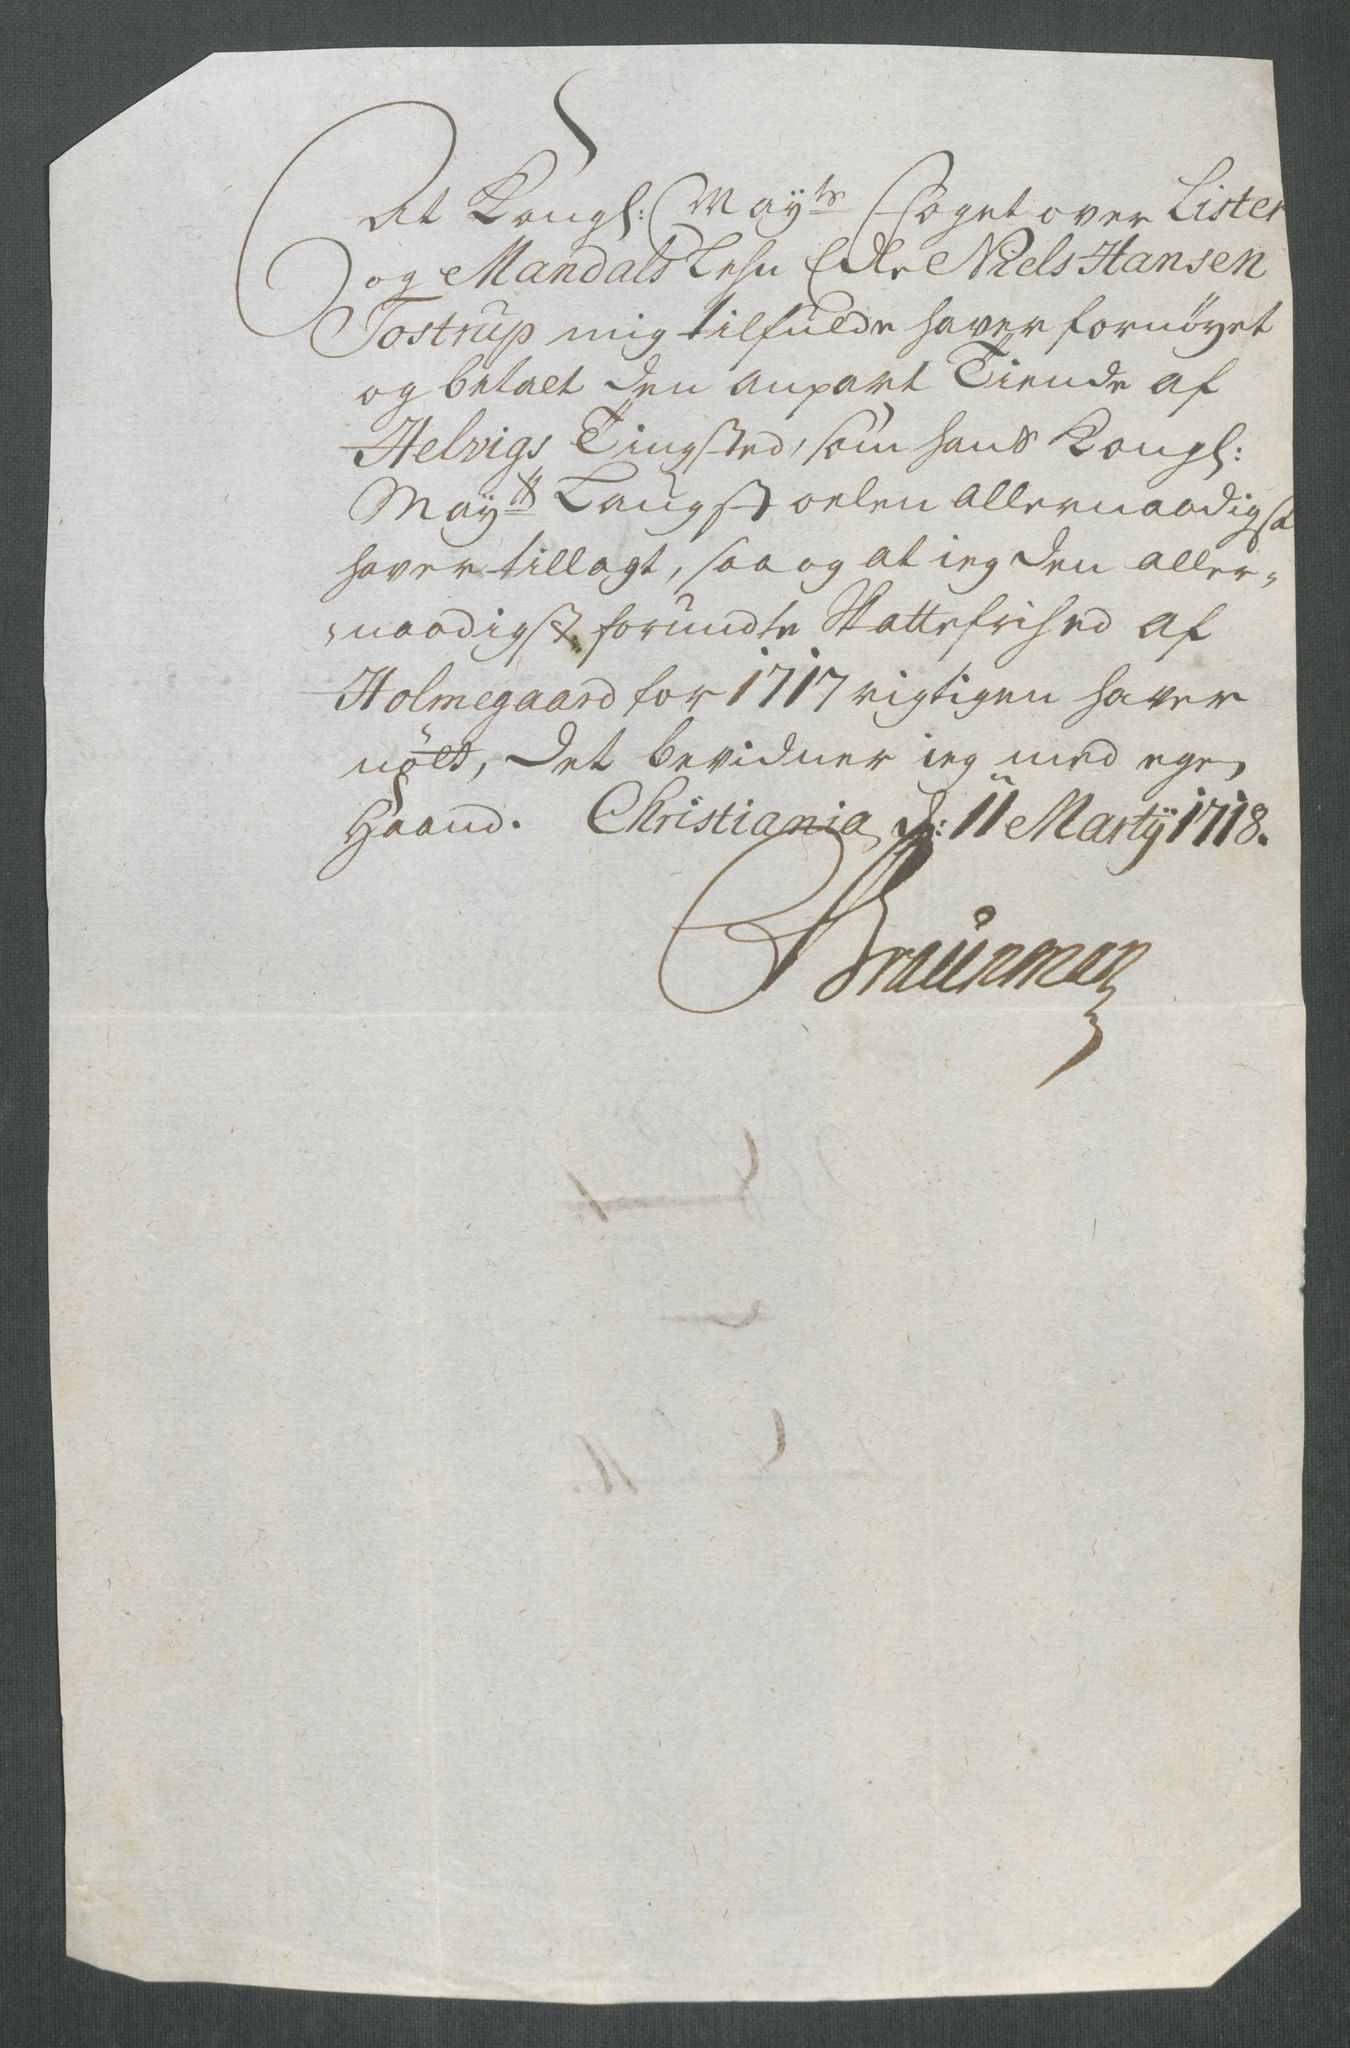 At Kongl: Mayts Foget over Lister
og Mandals Lehn Edle Niels Hansen
Tostrup mig tilfulde haver fornöyet
og betalt den anpart Tiende af
Helvigs Tingsted, som hans Kongl:
Mayts Laugstoelen allernaadigst
haver tillagt, saa og at ieg den aller-
naadigst forundte Skattefrihed af
Holmegaard for 1717 rigtigen haver
nött, det bevidner ieg med egen
Haand. Christiania d: 11 Martij 1718.
Braünman